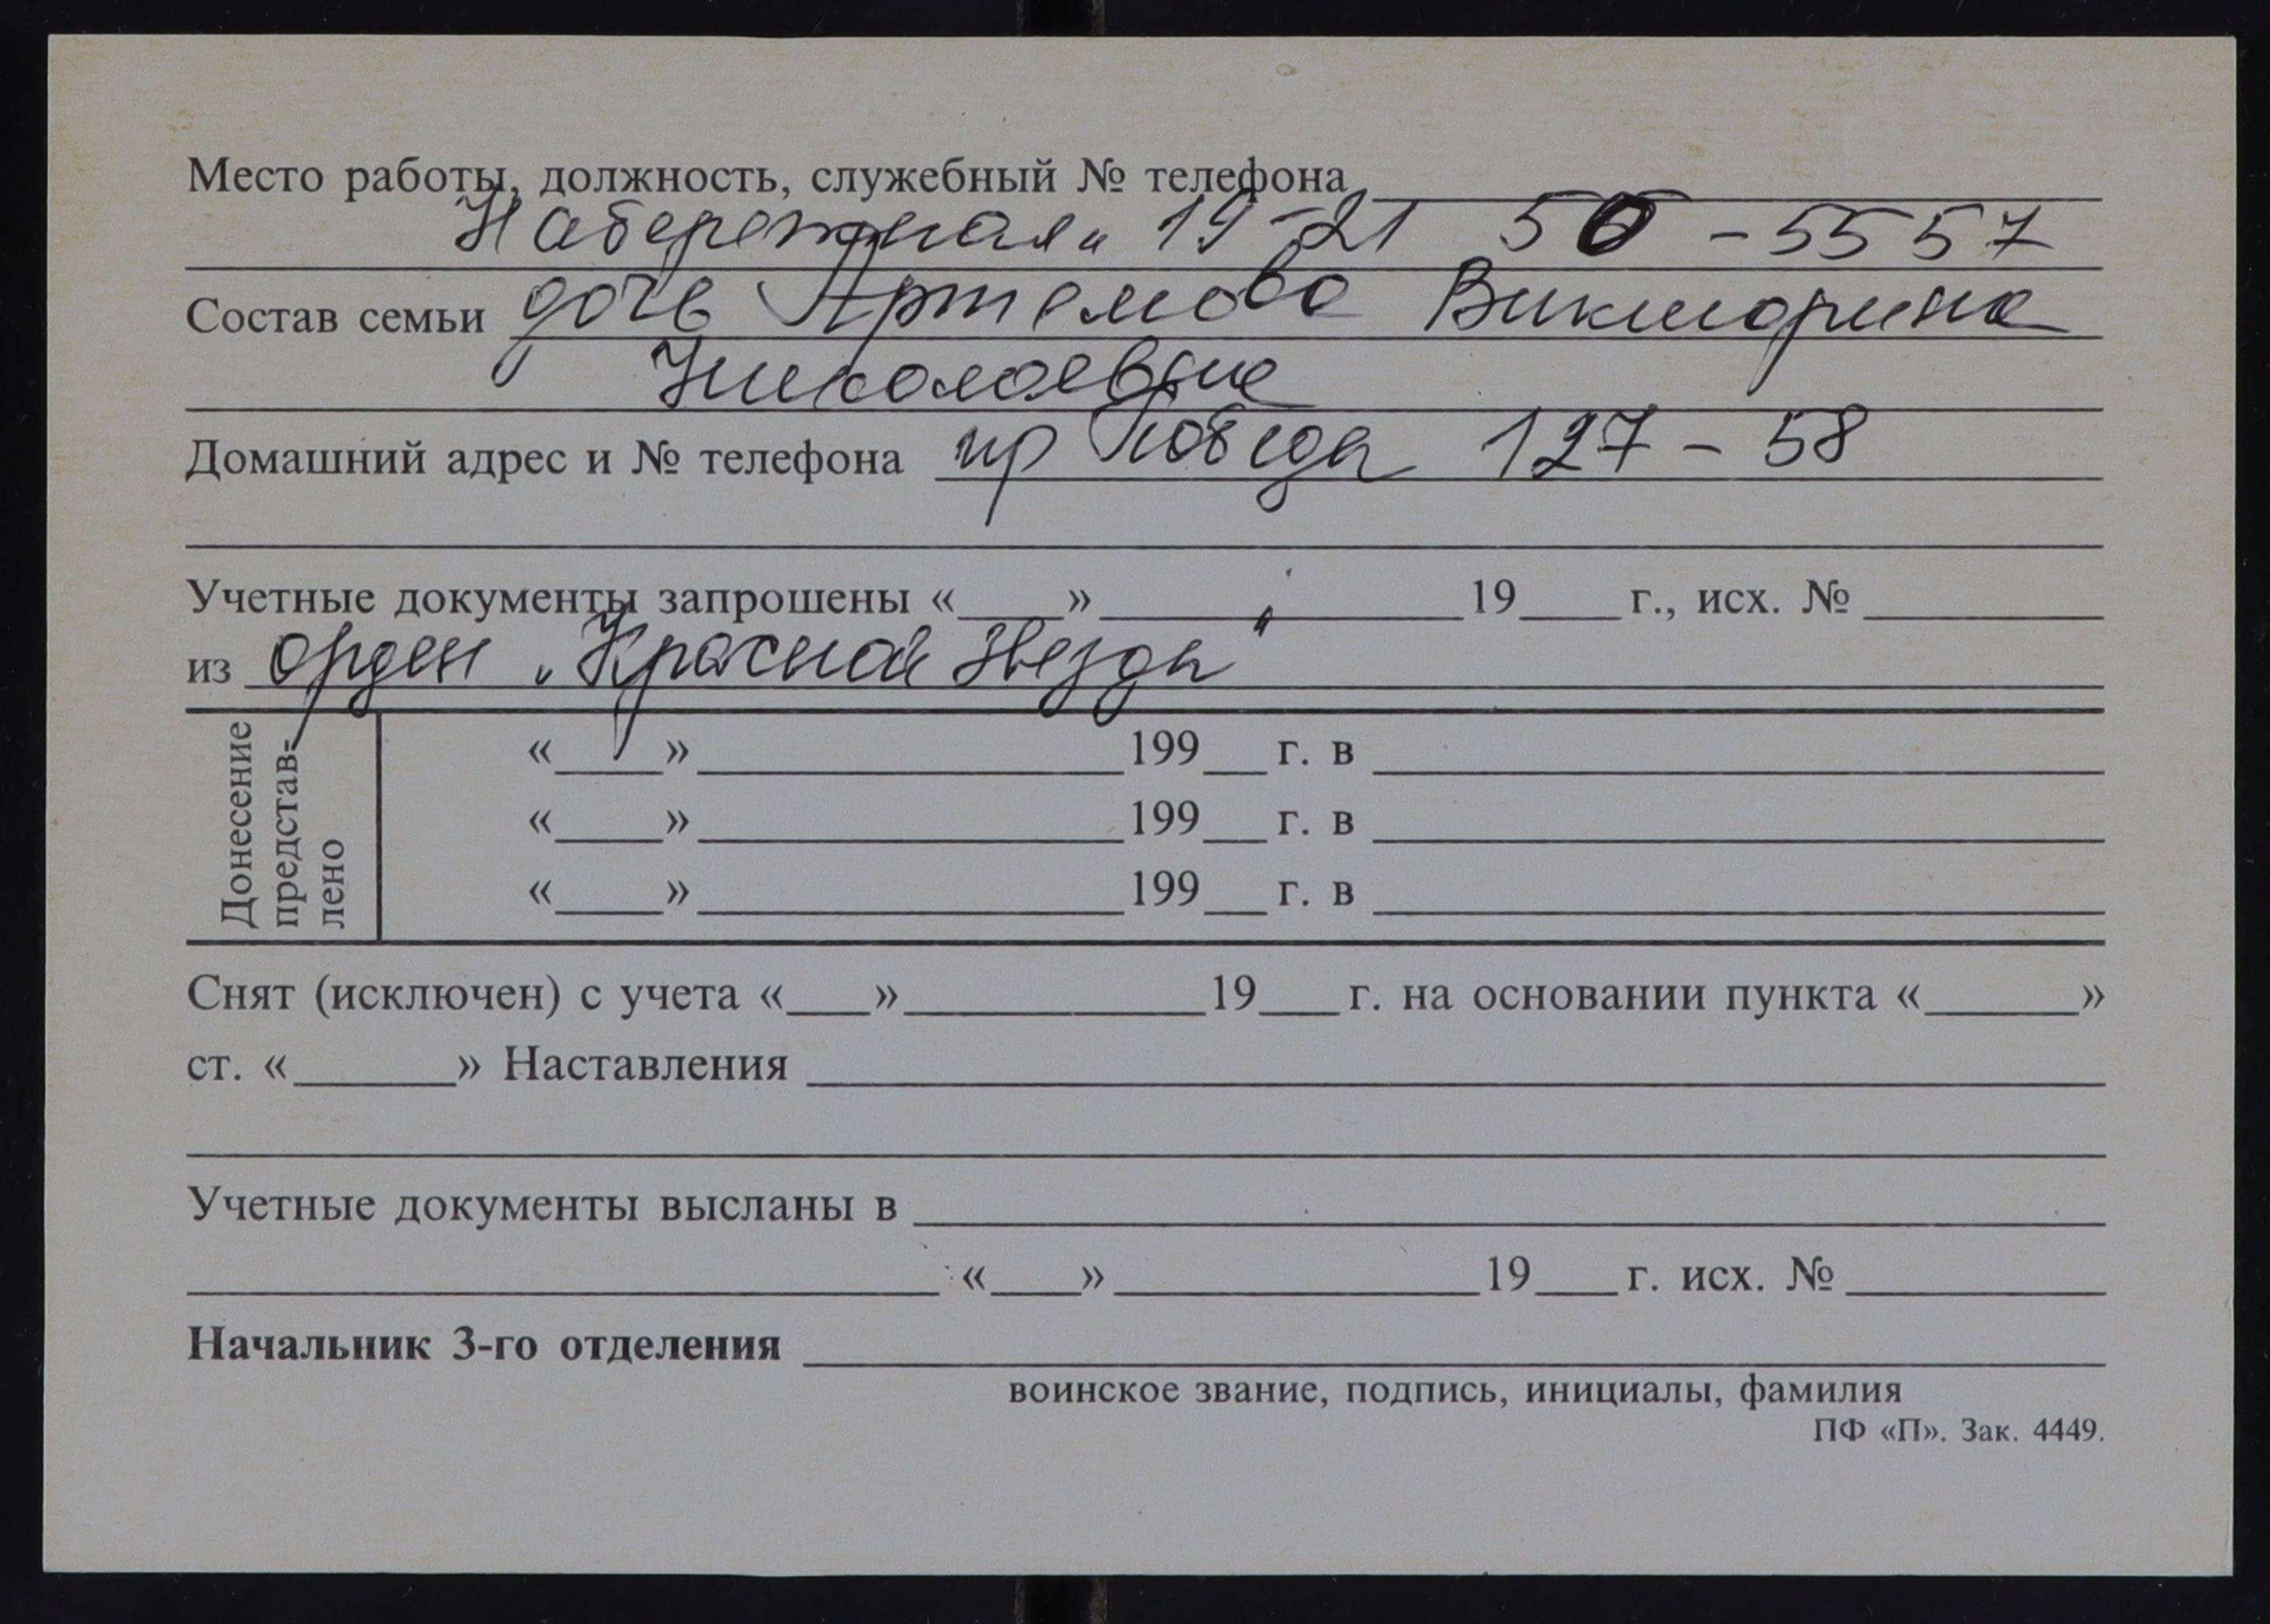 Место работы, должность, служебный № телефона
Набережная" 19-21 50-5557
Состав семьи дочь Артемова Викторина
Николаевна
Домашний адрес и № телефона пр Победы 127-58
Учетные документы запрошены «____» ____________ 19____ г., исх. № ________
из орден „Красной Звезды"
Донесение представ-лено
«____» ____________ 199__ г. в ____________
«____» ____________ 199__ г. в ____________
«____» ____________ 199__ г. в ____________
Снят (исключен) с учета «___» ____________ 19___ г. на основании пункта «______»
ст. «______» Наставления ____________
Учетные документы высланы в ____________
____________ «___» ____________ 19___ г. исх. № ________
Начальник 3-го отделения ____________
воинское звание, подпись, инициалы, фамилия
ПФ «П». Зак. 4449.